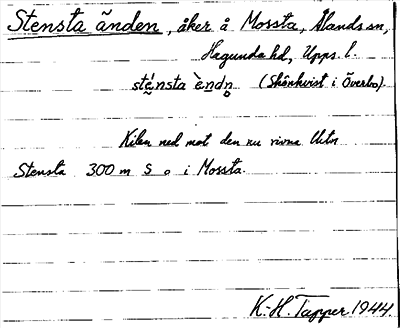 Stensta änden, åker å Mossta, Ålands sn,
Hagunda hd, Upps. l.
sté̀nsta èndn̥ (Skönkvist i Överbo).
Kilen ned mot den nu rivna
Stensta 300 m S o i Mossta.
K.-H. Tapper 1944.